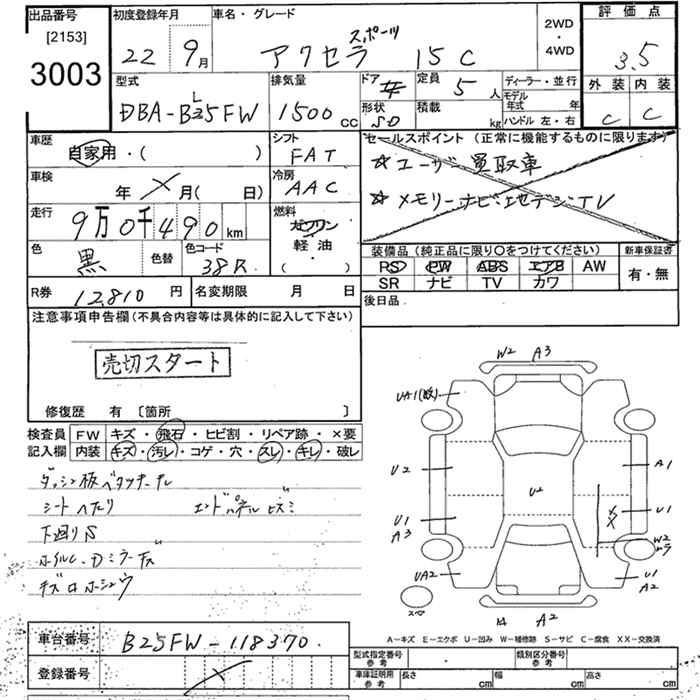 出品番号
[2153]
3003
初度登録年月
22 9月
車名・グレード
アクセラ スポーツ 15C
2WD
・
4WD
評価点
3.5
外装 内装
C C
型式
DBA-BL5FW
排気量
1500 cc
ドア
形状
定員 5 人
積載 kg
ディーラー・並行
モデル年式 年
ハンドル 左・右
車歴
自家用・( )
シフト
FAT
車検
年 月( 日)
冷房
AAC
走行
9万0千490km
燃料
ガソリン
軽油
( )
色
黒
色替
色コード
38R
R券 12,810 円
名変期限 月 日
セールスポイント (正常に機能するものに限ります)
☆ユーザー買取車
☆メモリーナビ・地デジTV
装備品 (純正品に限り○をつけてください)
PS PW ABS エアB AW
SR ナビ TV カワ
新車保証書
有・無
後日品
注意事項申告欄 (不具合内容等は具体的に記入して下さい)
売切スタート
修復歴 有 〔箇所 〕
検査員記入欄
FW キズ・飛石・ヒビ割・リペア跡・×要
内装 キズ・汚レ・コゲ・穴・スレ・キレ・破レ
シートヘたり
下廻りS
W2 A3
U2
A1
U2
U1
A3
U1
UA2
U1
A2
A2
スペア
A-キズ E-エクボ U-凹み W-補修跡 S-サビ C-腐食 XX-交換済
車台番号 B25FW-118370
登録番号
型式指定番号 参考
類別区分番号 参考
車庫証明用 参考
長さ cm 幅 cm 高さ cm